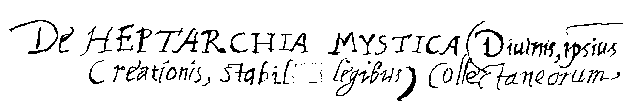 De HEPTARCHIA MYSTICA (Diuinis, ipsius
Creationis, stabil legibus) Collectaneorum